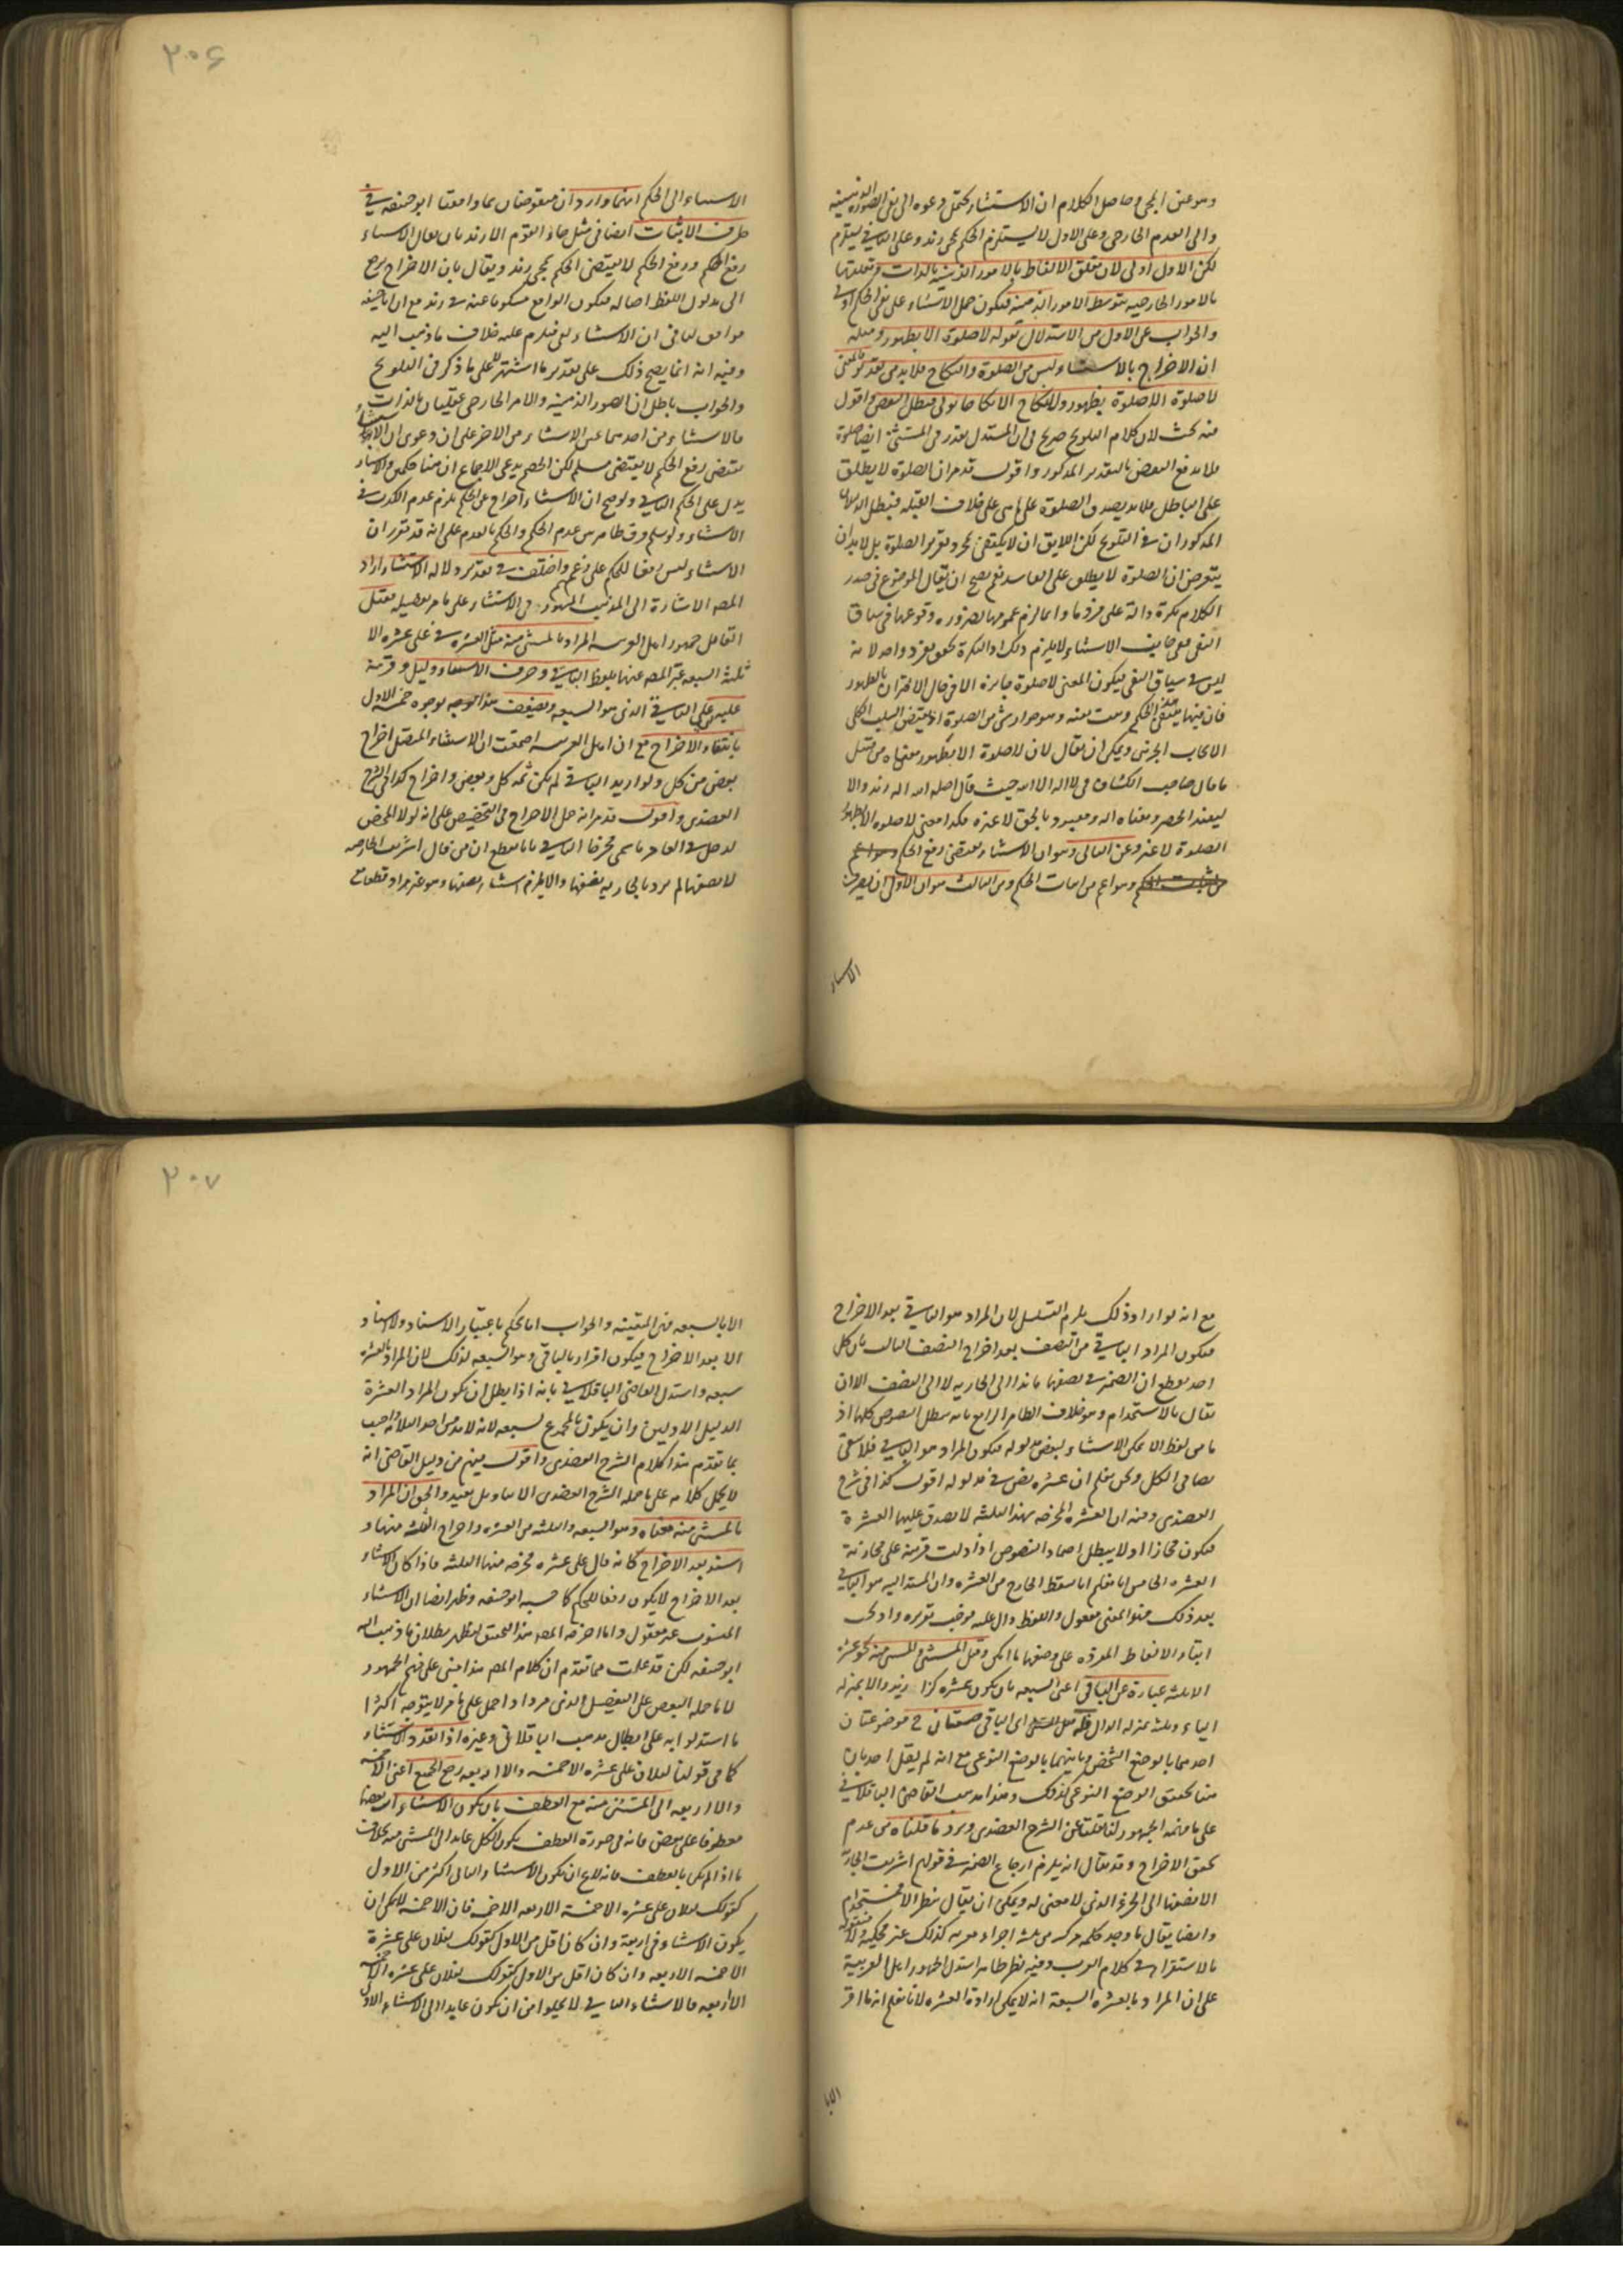 وهو عين المجئ وحاصل الكلام ان الاستثناء يحتمل رجوعه الى نفى الصورة الذهنية
والى العدم الخارجى وعلى الاول لا يستلزم الحكم بمجئ زيد وعلى الثانى يستلزم
لكن الاول اولى لان تعلق الالفاظ بالامور الذهنية بالذات وتعلقها
بالامور الخارجيه بتوسط الامور الذهنية فيكون حمل الاستثناء على نفى الحكم اولى
والجواب عن الاول من الاستدلال بقوله لا صلوة الا بطهور ومثله
ان الاخراج بالاستثناء ليس من الصلوة والنكاح فلا بد من تقدير فالمعنى
لا صلوة الا صلوة بطهور ولا نكاح الا نكاحا بولى فبطل النقض واقول
فيه بحث لان كلام التلويح صريح فى ان المستدل يقدر فى المستثنى ايضا صلوة
فلا يدفع النقض بالتقدير المذكور واقول قد مر ان الصلوة لا يطلق
على الباطل فلا يصدق الصلوة على ما هى على خلاف القبلة فبطل الدليلان
المذكوران فى التلويح لكن اللايق ان لا يكتفى بمجرد تقدير الصلوة بل لا بد ان
يتعرض ان الصلوة لا يطلق على الفاسد نعم يصح ان يقال الموضوع فى صدر
الكلام نكرة دالة على فرد ما وانما لزم عمومها لضرورة وقوعها فى سياق
النفى ففى جانب الاستثناء لا يلزم ذلك اذ النكرة تحقق بفرد واحد لانه
ليس فى سياق النفى فيكون المعنى لا صلوة جايزة الا فى حال الاقتران بالطهور
فان فيها ينتفى الحكم ويثبت نقيضه وهو جواز شئ من الصلوة اذ نقيض السلب الكلى
الايجاب الجزئى ويمكن ان يقال لان لا صلوة الا بطهور معناه من قبيل
ما قال صاحب الكشاف فى لا اله الا الله حيث قال اصله الله اله زيد والا
ليفيد الحصر ومعناه اله ومعبود بالحق لا غيره فكذا معنى لا صلوة الا بطهور
الصلوة لا غير وعن الثانى وهو ان الاستثناء يقتضى رفع الحكم وهو اعم
من اثبات الحكم وهو اعم من اثبات الحكم ومن الثالث هو ان الاول ان يصرف
الاستثناء
۲۰۶
الاستثناء الى الحكم انهما واردان منقوضان بما وافقنا ابو حنيفه فى
طرف الاثبات ايضا فى مثل جاء القوم الا زيد بان يقال الاستثناء
رفع الحكم ورفع الحكم لا يقتضى الحكم بمجئ زيد ويقال بان الاخراج يرجع
الى مدلول اللفظ اصالة فيكون الواقع مسكوتا عنه فى زيد مع ان ابا حنيفه
موافق لنا فى ان الاستثناء نفى فيلزم عليه خلاف ما ذهب اليه
وفيه انه انما يصح ذلك على تقدير ما اشتهر لا على ما ذكر فى التلويح
والجواب باطل ان الصور الذهنية والامر الخارجى متقابلان بالذات
فالاستثناء من احدهما عين الاستثناء من الاخر على ان دعوى ان الاستثناء
يقتضى رفع الحكم لا يقتضى مسلم لكن الخصم يدعى الاجماع ان هنا حكمين والاستثناء
يدل على الحكم الثانى ولو صح ان الاستثناء اخراج عن الحكم يلزم عدم الكذب فى
الاستثناء ولو سلم فرق ظاهر بين عدم الحكم والحكم بالعدم على انه قد تقرر ان
الاستثناء ليس رفعا للحكم على زعمهم واختلف فى تقدير دلالة الاستثناء اراد
المصه الاشارة الى المذهب المشهور فى الاستثناء على ما مر تفصيله فقيل
القائل جمهور اهل العربية المراد بالمستثنى منه مثل العشرة فى على عشرة الا
ثلثة السبعه عبر المصه عنها بلفظ الباقى وحرف الاستثناء دليل وقرينة
عليه اى على الباقى الذى هو السبعه ويضعف هذا الوجه بوجوه خمسة الاول
بانتفاء الاخراج مع ان اهل العربية اجمعت ان الاستثناء المتصل اخراج
بعض من كل ولو اريد الباقى لم يكن ثمه كل وبعض واخراج كذا فى الشرح
العضدى واقول قد مر انه حمل الاخراج فى التخصيص على انه لولا المخصص
لدخل فى العام ما سمى مخرجا الثانى بانا نقطع ان من قال اشتريت الجاريه
الا نصفها لم يرد بالجاريه نصفها والا يلزم استثناء نصفها وهو غير مراد قطعا مع
مع انه لو اراد ذلك يلزم التسلسل لان المراد هو الباقى بعد الاخراج
فيكون المراد الباقى من النصف بعد اخراج النصف الثالث بان كل
احد يقطع ان الضمير فى نصفها عايد الى الجاريه لا الى النصف الا ان
يقال بالاستخدام وهو خلاف الظاهر الرابع بانه يبطل النصوص كلها اذ
ما من لفظ الا يمكن الاستثناء لبعض مدلوله فيكون المراد هو الباقى فلا يبقى
نصا فى الكل ونحن نعلم ان عشرة نص فى مدلوله اقول كذا فى شرح
العضدى وفيه ان العشرة المخرجه بهذا الثلثه لا يصدق عليها العشرة
فيكون مجازا اولا يبطل اصلا النصوص اذا دلت قرينة على مجازية
العشره الخامس انا نعلم انا نسقط الخارج من العشره وان المسند اليه هو الباقى
بعد ذلك فهذا المعنى معقول واللفظ دال عليه فوجب تقريره واذ يجب
ابقاء الالفاظ المفردة على وضعها ما امكن وقيل المستثنى والمستثنى منه نحو عشره
الا ثلثه عبارة عن الباقى اعنى السبعه بان يكون عشرة كزا زيد والا بمنزله
الياء وثلثه بمنزله الدال فله اى الباقى صيغتان موضوعتان
احدهما بالوضع الشخصى وثانيهما بالوضع النوعى مع انه لم يقل احد بان
هنا تحقق الوضع النوعى كذلك وهذا مذهب القاضى الباقلانى
على ما فهمه الجمهور لما نقلنا عن الشرح العضدى ويرد ما قلناه من عدم
تحقق الاخراج وقد يقال انه يلزم ارجاع الضمير فى قولهم اشتريت الجارية
الا نصفها الى الجزء الذى لا معنى له ويمكن ان يقال بنظر الاستخدام
وايضا يقال ما وجد كلمه مركبه من ثلثه اجزاء معربه كذلك غير محكية ولا منقولة
بالاستقراء فى كلام العرب وفيه نظر ظاهر استدل الجمهور اهل العربية
على ان المراد بالعشره السبعة انه لا يمكن ارادة العشره لانا نعلم انه ما اقر
الا با
۲۰۷
الا بالسبعه فهى المتعينه والجواب انا نحكم باعتبار الاسناد ولا اسناد
الا بعد الاخراج فيكون اقرار بالباقى وهو السبعه لذلك لا ان المراد بالعشره
سبعه واستدل القاضى الباقلانى بانه اذا بطل ان يكون المراد العشرة
الدليل الاولين وان يكون المجموع لسبعه لانه لا بد من احد الثلاثة واجب
بما تقدم هذا كلام الشرح العضدى واقول يفهم من دليل القاضى انه
لا يحمل كلامه على ما حمله الشرح العضدى الا بتاويل بعيد والحق ان المراد
بالمستثنى منه معناه وهو السبعه والثلثه من العشره واخراج الثلثه منها و
اسند بعد الاخراج كانه قال على عشره مخرجه منها الثلثه فاذا كان الاسناد
بعد الاخراج لا يكون رفعا للحكم كما حسبه ابو حنيفه وظهر ايضا ان الاستثناء
المنسوب غير معقول وانما اخر المصه هذا التحقيق ليظهر بطلان ما ذهب اليه
ابو حنيفه لكن قد علمت مما تقدم ان كلام المصه هذا مبنى على فهم الجمهور
لا ما حمله البعض على التفصيل الذى مر واذا حمل على ما مر لا يتوجه اكثر
ما استدلوا به على ابطال مذهب الباقلانى وغيره اذا تعدد الاستثناء
كما فى قولنا لفلان على عشره الا خمسه والا اربعه رجع الجميع اعنى الا خمسه
والا اربعه الى المستثنى منه مع العطف بان يكون الاستثناءات بعضها
معطوفا على بعض فانه فى صورة العطف يكون الكل عايدا الى المستثنى منه بخلاف
ما اذا لم يكن بالعطف فانه لا يخ ان يكون الاستثناء والثانى اكثر من الاول
كقولك لفلان على عشره الا خمسة الا اربعه الا خمسه فان الا خمسه لا يمكن ان
يكون الاستثناء فى اربعة وان كان اقل من الاول كقولك لفلان على عشرة
الا خمسه الا اربعه وان كان اقل من الاول كقولك لفلان على عشره الا خمسه
الا اربعه فالاستثناء الثانى لا يخلوا من ان يكون عايدا الى الاستثناء الاول